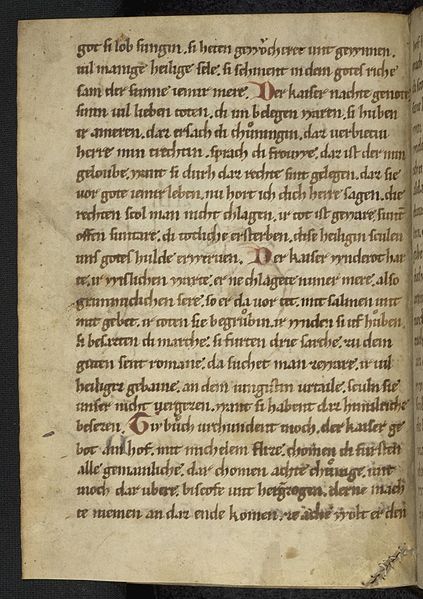 got si lob sungin. si heten gewocheret unt gewnnen.
uil manige heilige sele. si schinent in dem gotes riche
sam der sunne iemir mere. Der kaiser nachte genote
sinin uil lieben toten. di im belegen waren. si huben
ir ameren. daz ersach di chůningin. daz uerbiutu
herre min trechtin. sprach di frouwe. daz ist der min
geloube. want si durh daz rechte sint gelegen. daz sie
vor gote iemir leben. nu hort ich dich herre sagen. die
rechten scol man nicht chlagen. ir tot ist geware. sunt
offen suntare. di totliche ersterben. dise heiligin sculen
uns gotes hulde erwerven. Der kaiser wnderot har
te. ir wislichen warte. er ne chlagete nimer mere. also
grimmiclichen sere. so er da vor tet. mit salmen unt
mit gebet. ir toten sie begrůbin. ir wnden si uf hůben.
si besazten di marche. si furten drie sarche. zu dem
guten sent romane. da suchet man zeware. ir uil
heiliger gebaine. an dem iungistin urtaile. sculn sie
unser nicht uergezen. want si habent daz himilriche
besezen. Diu bůch urchundent noch. der kaiser ge
bot ainen hof. mit michelem flize. chomen di fursten
alle gemainliche. dar chomen achte chůnige. unt
noch dar ubere. biscofe unt herzogen. derne mach
te niemen an daz ende komen. ze ache wolt er den